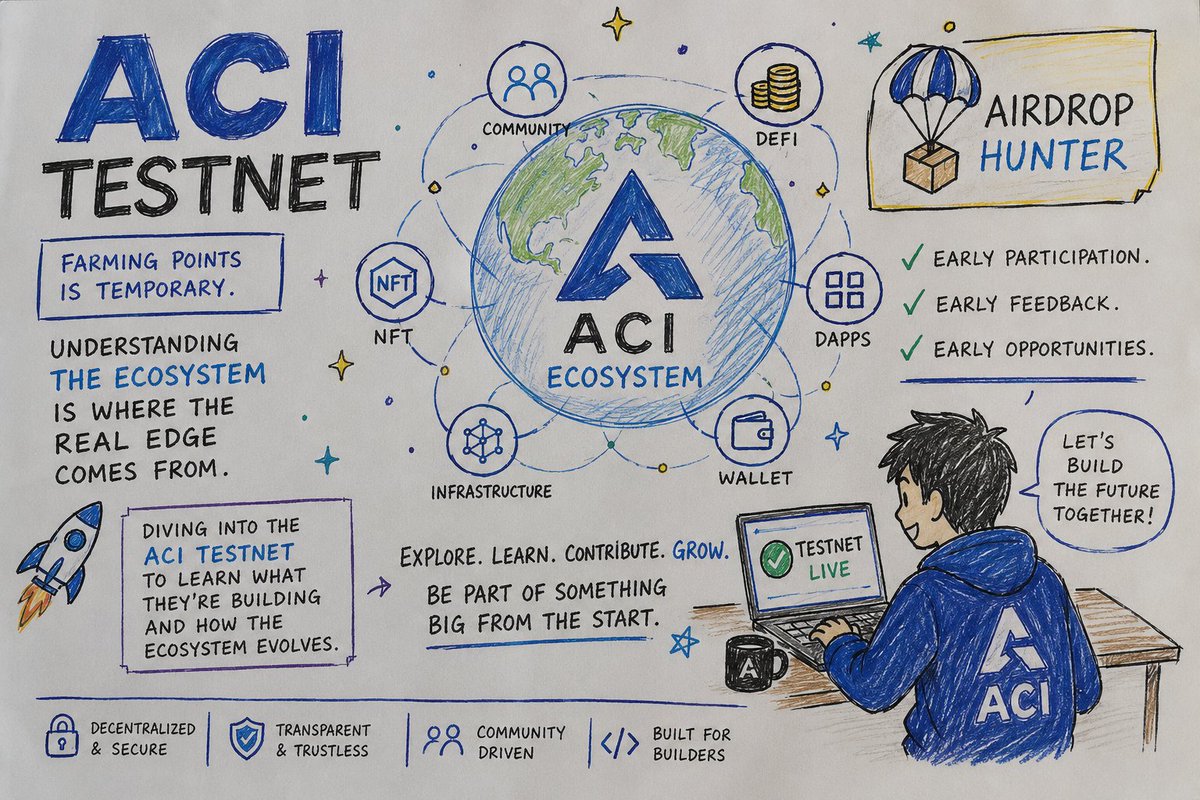 ACI
TESTNET
FARMING POINTS
IS TEMPORARY.
UNDERSTANDING
THE ECOSYSTEM
IS WHERE THE
REAL EDGE
COMES FROM.
DIVING INTO THE
ACI TESTNET
TO LEARN WHAT
THEY'RE BUILDING
AND HOW THE
ECOSYSTEM EVOLVES.
COMMUNITY
DEFI
NFT
NFT
DAPPS
INFRASTRUCTURE
WALLET
ACI
ECOSYSTEM
EXPLORE. LEARN. CONTRIBUTE. GROW.
BE PART OF SOMETHING
BIG FROM THE START.
AIRDROP
HUNTER
EARLY PARTICIPATION.
EARLY FEEDBACK.
EARLY OPPORTUNITIES.
LET'S
BUILD
THE FUTURE
TOGETHER!
TESTNET
LIVE
ACI
DECENTRALIZED
& SECURE
TRANSPARENT
& TRUSTLESS
COMMUNITY
DRIVEN
BUILT FOR
BUILDERS